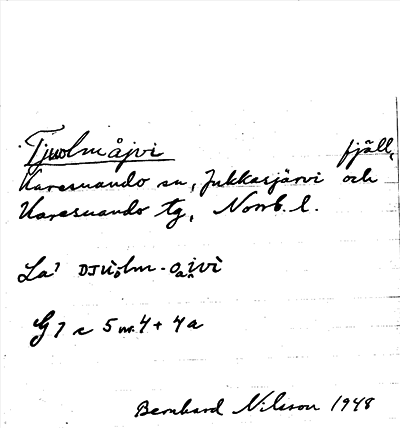 Tjuolmåjvi fjäll,
Karesuando sn, Jukkasjärvi och
Karesuando tg, Norrb. l.
La⁷ DJŭolm-oaivi
G 7 c 5 nr. 4 + 4 a
Bernhard Nilsson 1948